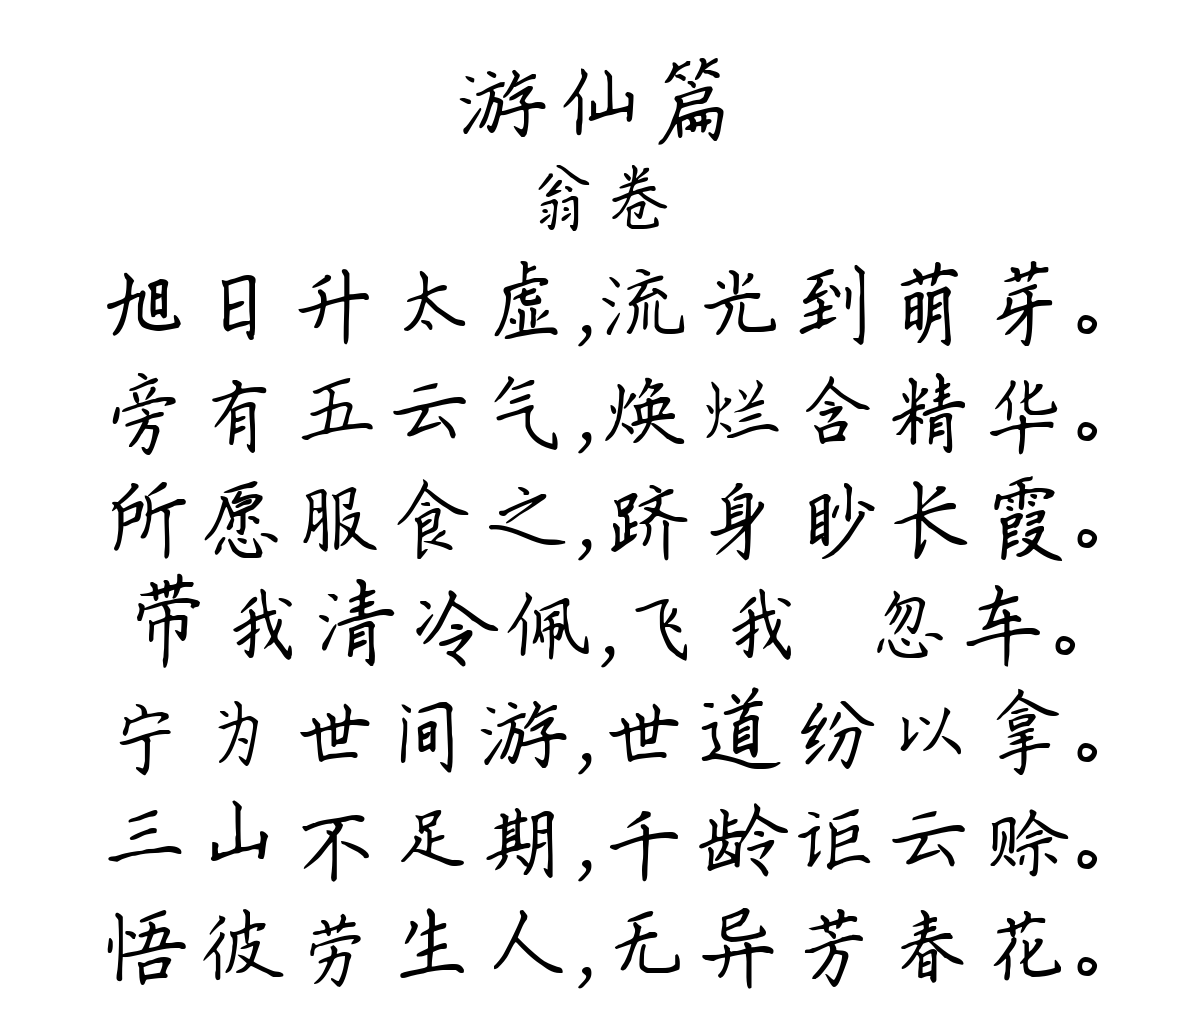 游仙篇
翁卷
旭日升太虚,流光到萌芽。
旁有五云气,焕烂含精华。
所愿服食之,跻身眇长霞。
带我清冷佩,飞我 忽车。
宁为世间游,世道纷以拿。
三山不足期,千龄讵云赊。
悟彼劳生人,无异芳春花。